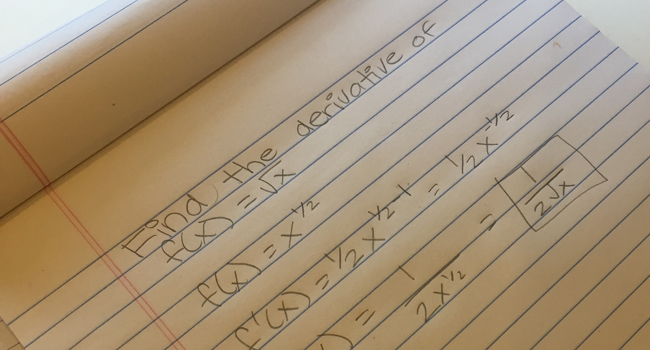 Find the derivative of
f(x) = √x
f(x) = x^1/2
f'(x) = 1/2 x^1/2 - 1 = 1/2 x^-1/2
) = 1/2x^1/2 = 1/2√x